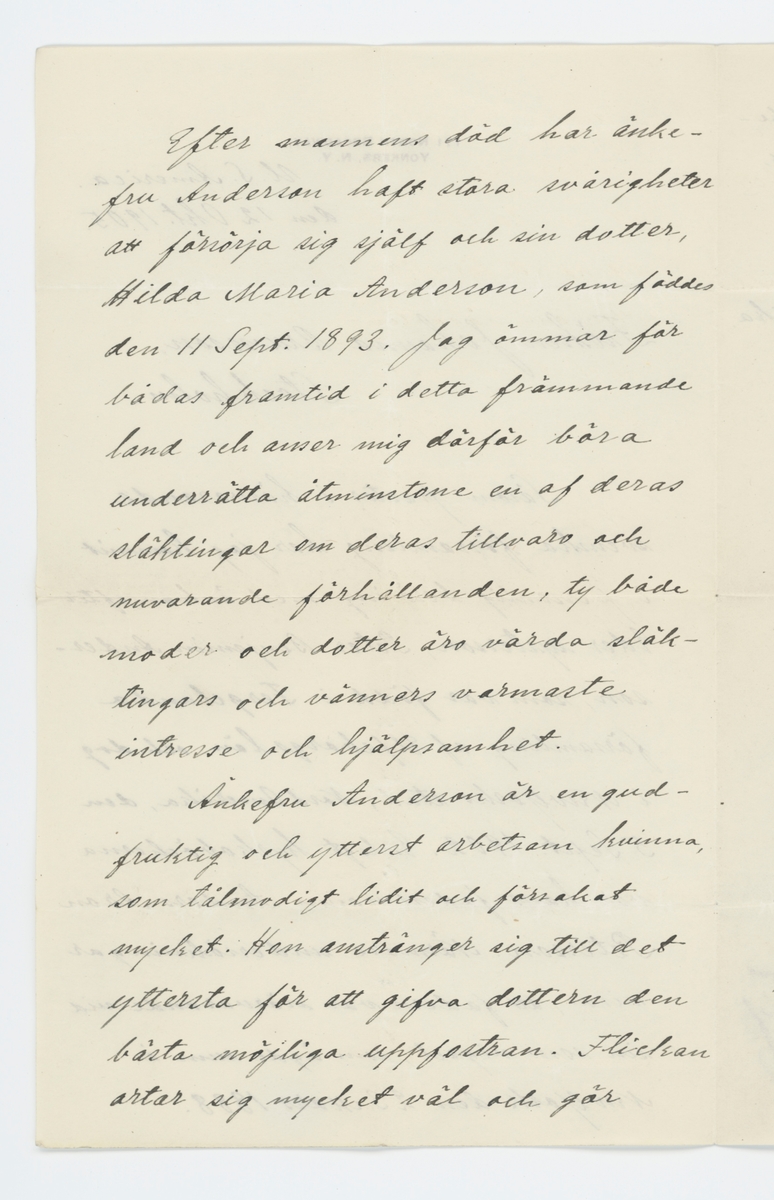 Efter mannens död har änke-
fru Anderson haft stora svårigheter
att försörja sig själf och sin dotter,
Hilda Maria Anderson, som föddes
den 11 Sept. 1893. Jag ömmar för
bådas framtid i detta främmande
land och anser mig därför böra
underrätta åtminstone en af deras
släktingar om deras tillvaro och
nuvarande förhållanden, ty både
moder och dotter äro värda släk-
tingars och vänners varmaste
intresse och hjälpsamhet.
Änkefru Anderson är en gud-
fruktig och ytterst arbetsam kvinna,
som tålmodigt lidit och försakat
mycket. Hon anstränger sig till det
yttersta för att gifva dottern den
bästa möjliga uppfostran. Flickan
artar sig mycket väl och gör